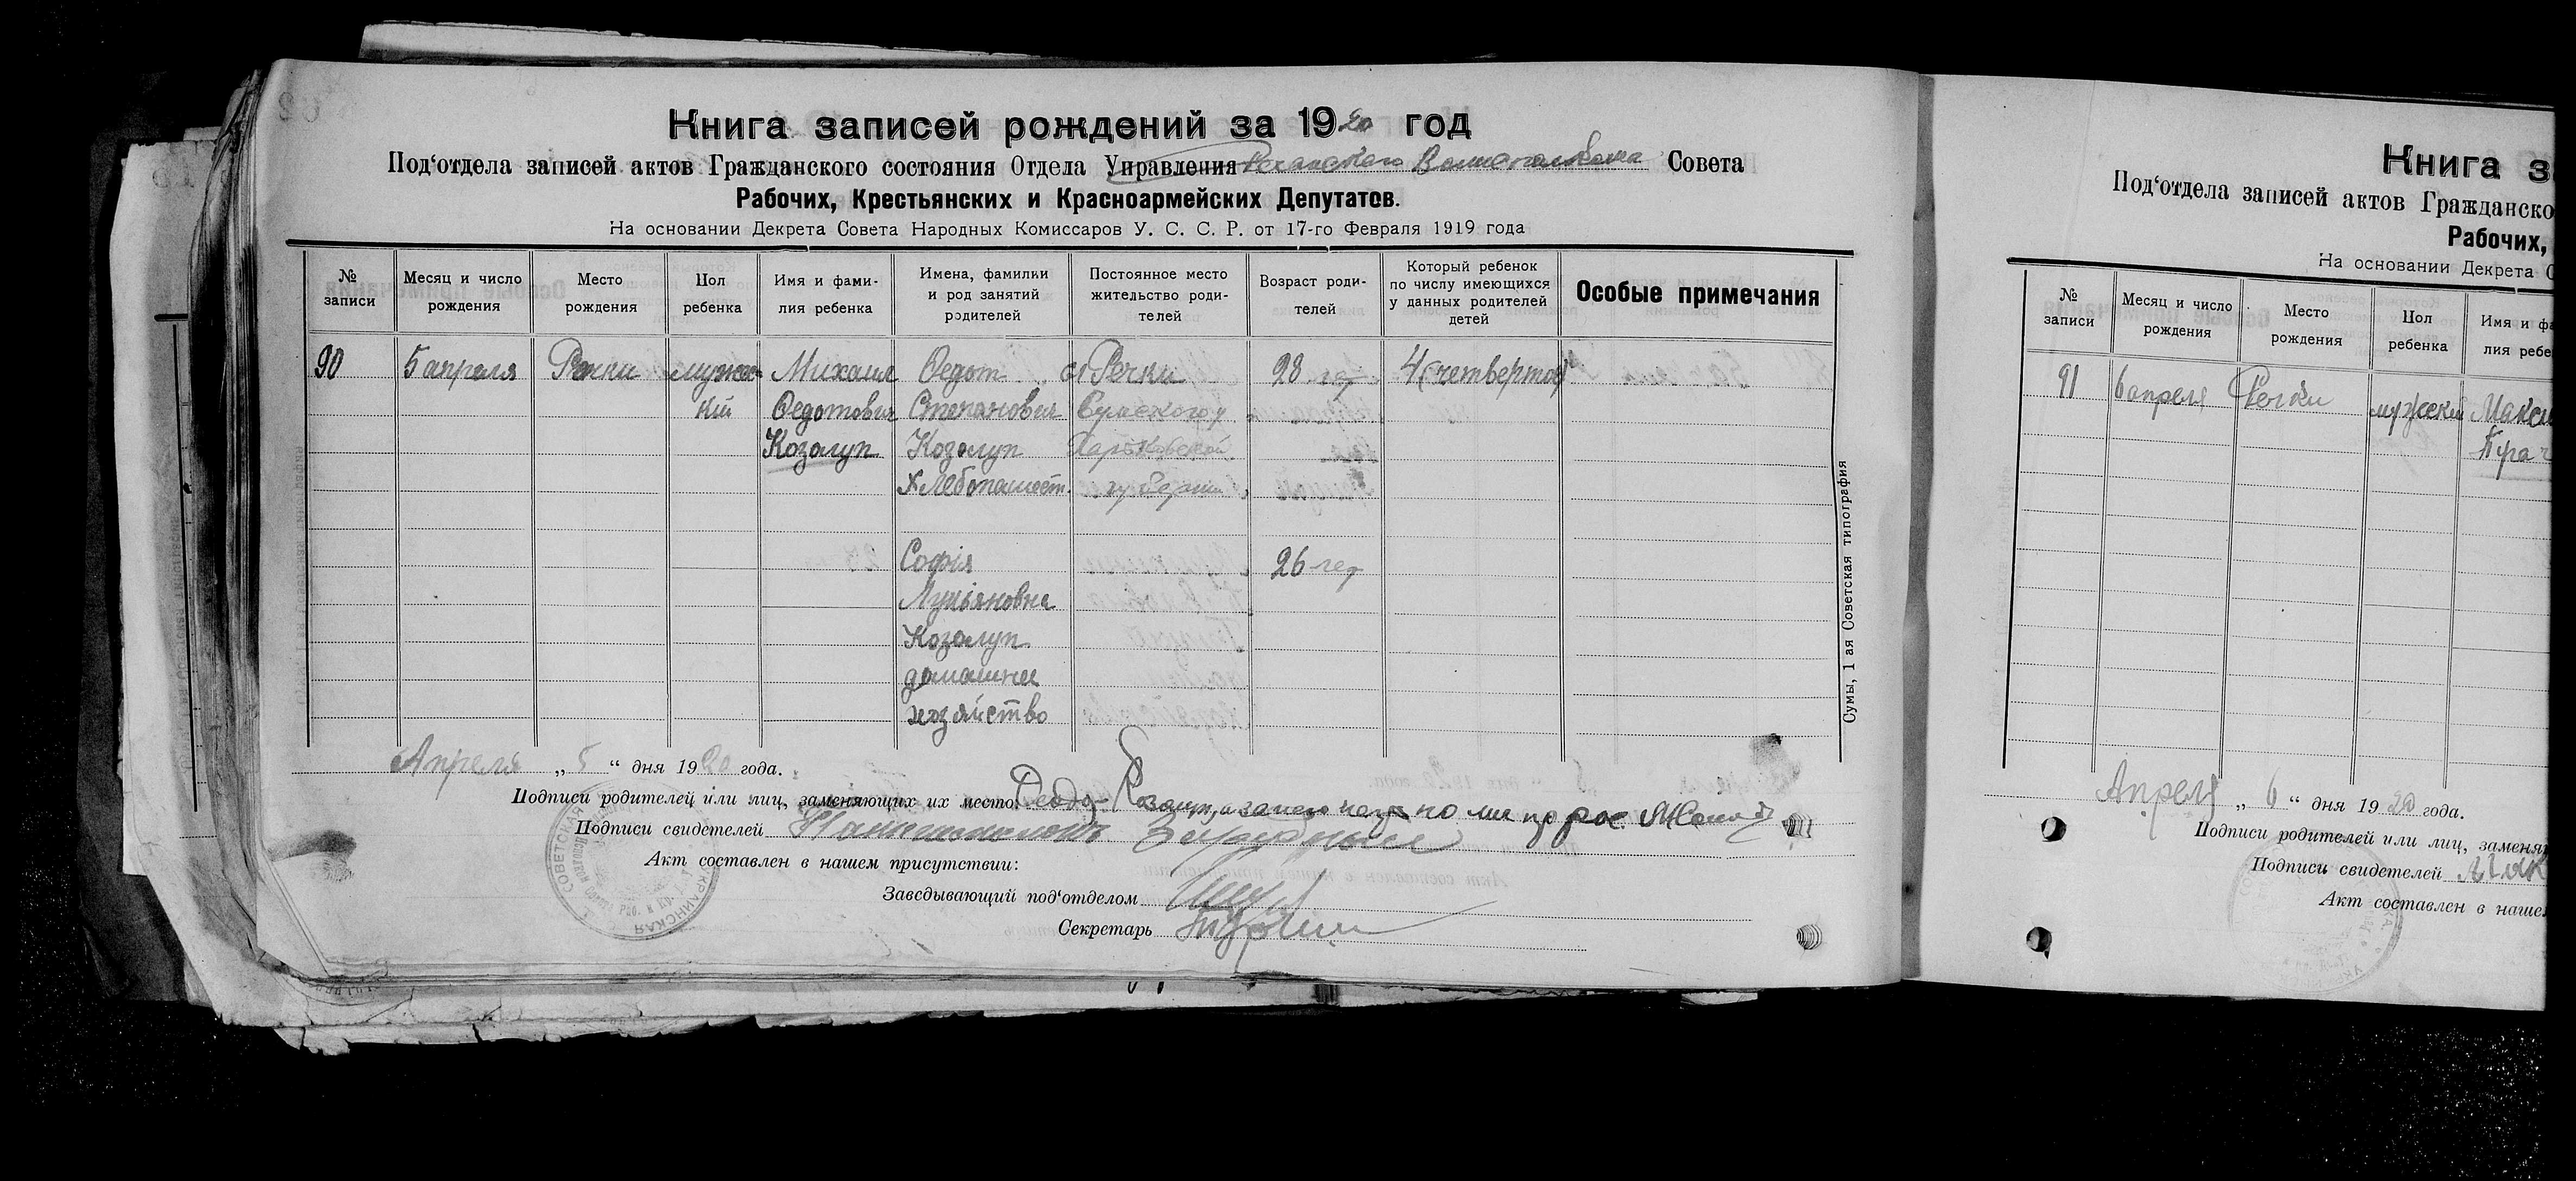 Книга записей рождений за 1920 год
Под‘отдела записей актов Гражданского состояния Отдела Управления Совета
Рабочих, Крестьянских и Красноармейских Депутатов.
На основании Декрета Совета Народных Комиссаров У. С. С. Р. от 17-го Февраля 1919 года
№ записи
Месяц и число рождения
Место рождения
Пол ребенка
Имя и фами-
лия ребенка
Имена, фамилии
и род занятий
родителей
Постоянное место
жительство роди-
телей
Возраст роди-
телей
Который ребенок
по числу имеющихся
у данных родителей
детей
Особые примечания
90 5 апреля Речки мужс Михаил Федот с. Речки 28 лет 4 (четвертое)
кій Федотович Степанович Сумского у
Козолуп Козолуп Харьковской
Хлебопашест. губернии
Софія 26 лет
Лукьяновна
Козолуп
домашнее
хозяйство
Апреля „ 5 “ дня 1920 года.
Подписи родителей или лиц, заменяющих их место: Козолуп, а за него
Подписи свидетелей
Акт составлен в нашем присутствии:
Заведывающий под‘отделом
Секретарь
Сумы, 1 ая Советская типография
Книга з
Под‘отдела записей актов Гражданско
Рабочих,
На основании Декрета С
№ записи
Месяц и число рождения
Место рождения
Пол ребенка
Имя и фа
лия ребе
91 6 апреля Речки мужски Макси
Апреля „ 6 “ дня 1920 года.
Подписи родителей или лиц, заменя
Подписи свидетелей
Акт составлен в наше